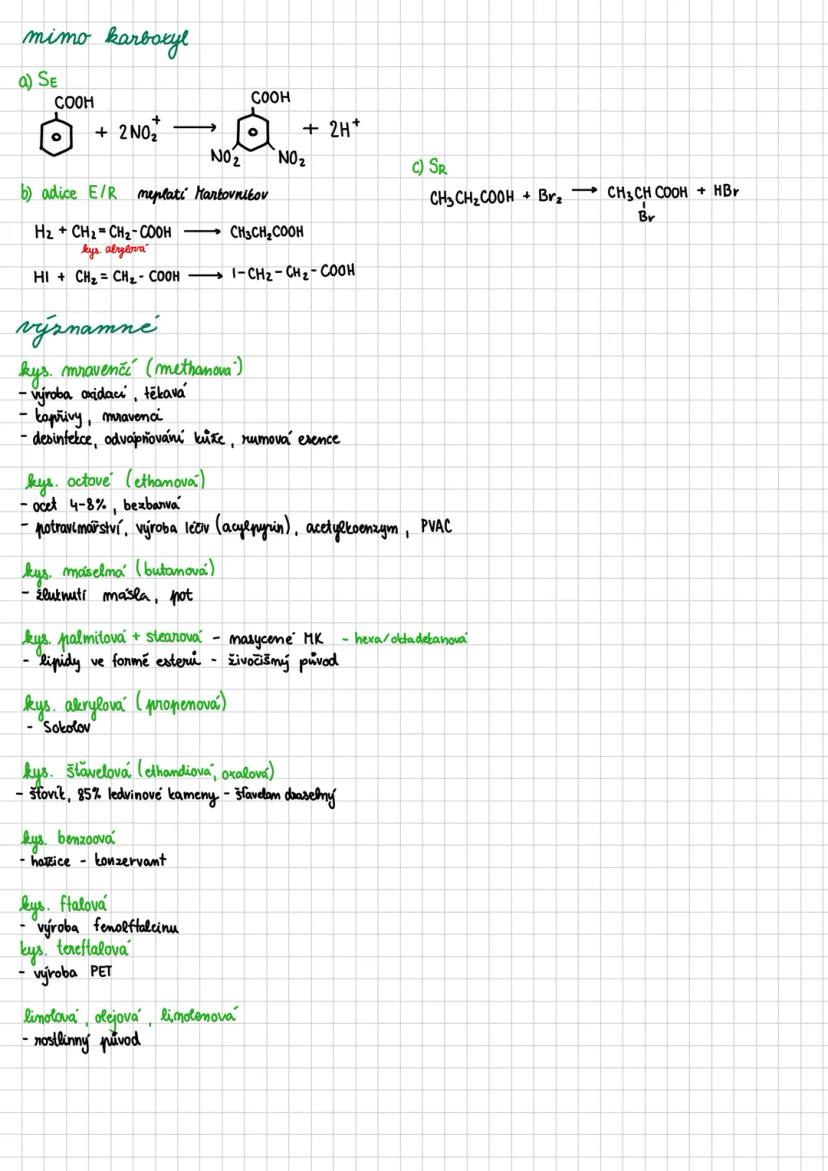 mimo karboxyl
a) SE
COOH
+ 2NO₂⁺ ⟶
COOH
NO₂ NO₂
+ 2H⁺
b) adice E/R neplatí Markovnikov
H₂ + CH₂=CH₂-COOH ⟶ CH₃CH₂COOH
kys. akrylová
HI + CH₂=CH₂-COOH ⟶ I-CH₂-CH₂-COOH
c) SR
CH₃CH₂COOH + Br₂ ⟶ CH₃CHCOOH + HBr
Br
významné
kys. mravenčí (methanová)
- výroba oxidací, těkavá
- kopřivy, mravenci
- desinfekce, odvápňování kůže, rumová esence
kys. octové (ethanová)
- ocet 4-8%, bezbarvá
- potravinářství, výroba léčiv (acylpyrin), acetylkoenzym, PVAC
kys. máselná (butanová)
- žluknutí másla, pot
kys. palmitová + stearová - nasycené MK - hexa/oktadekanová
- lipidy ve formě esterů - živočišný původ
kys. akrylová (propenová)
- Sokolov
kys. šťavelová (ethandiová, oxalová)
- šťovík, 85% ledvinové kameny - šťavelan draselný
kys. benzoová
- hořčice - konzervant
kys. ftalová
- výroba fenolftaleinu
kys. tereftalová
- výroba PET
linolová, olejová, linolenová
- rostlinný původ